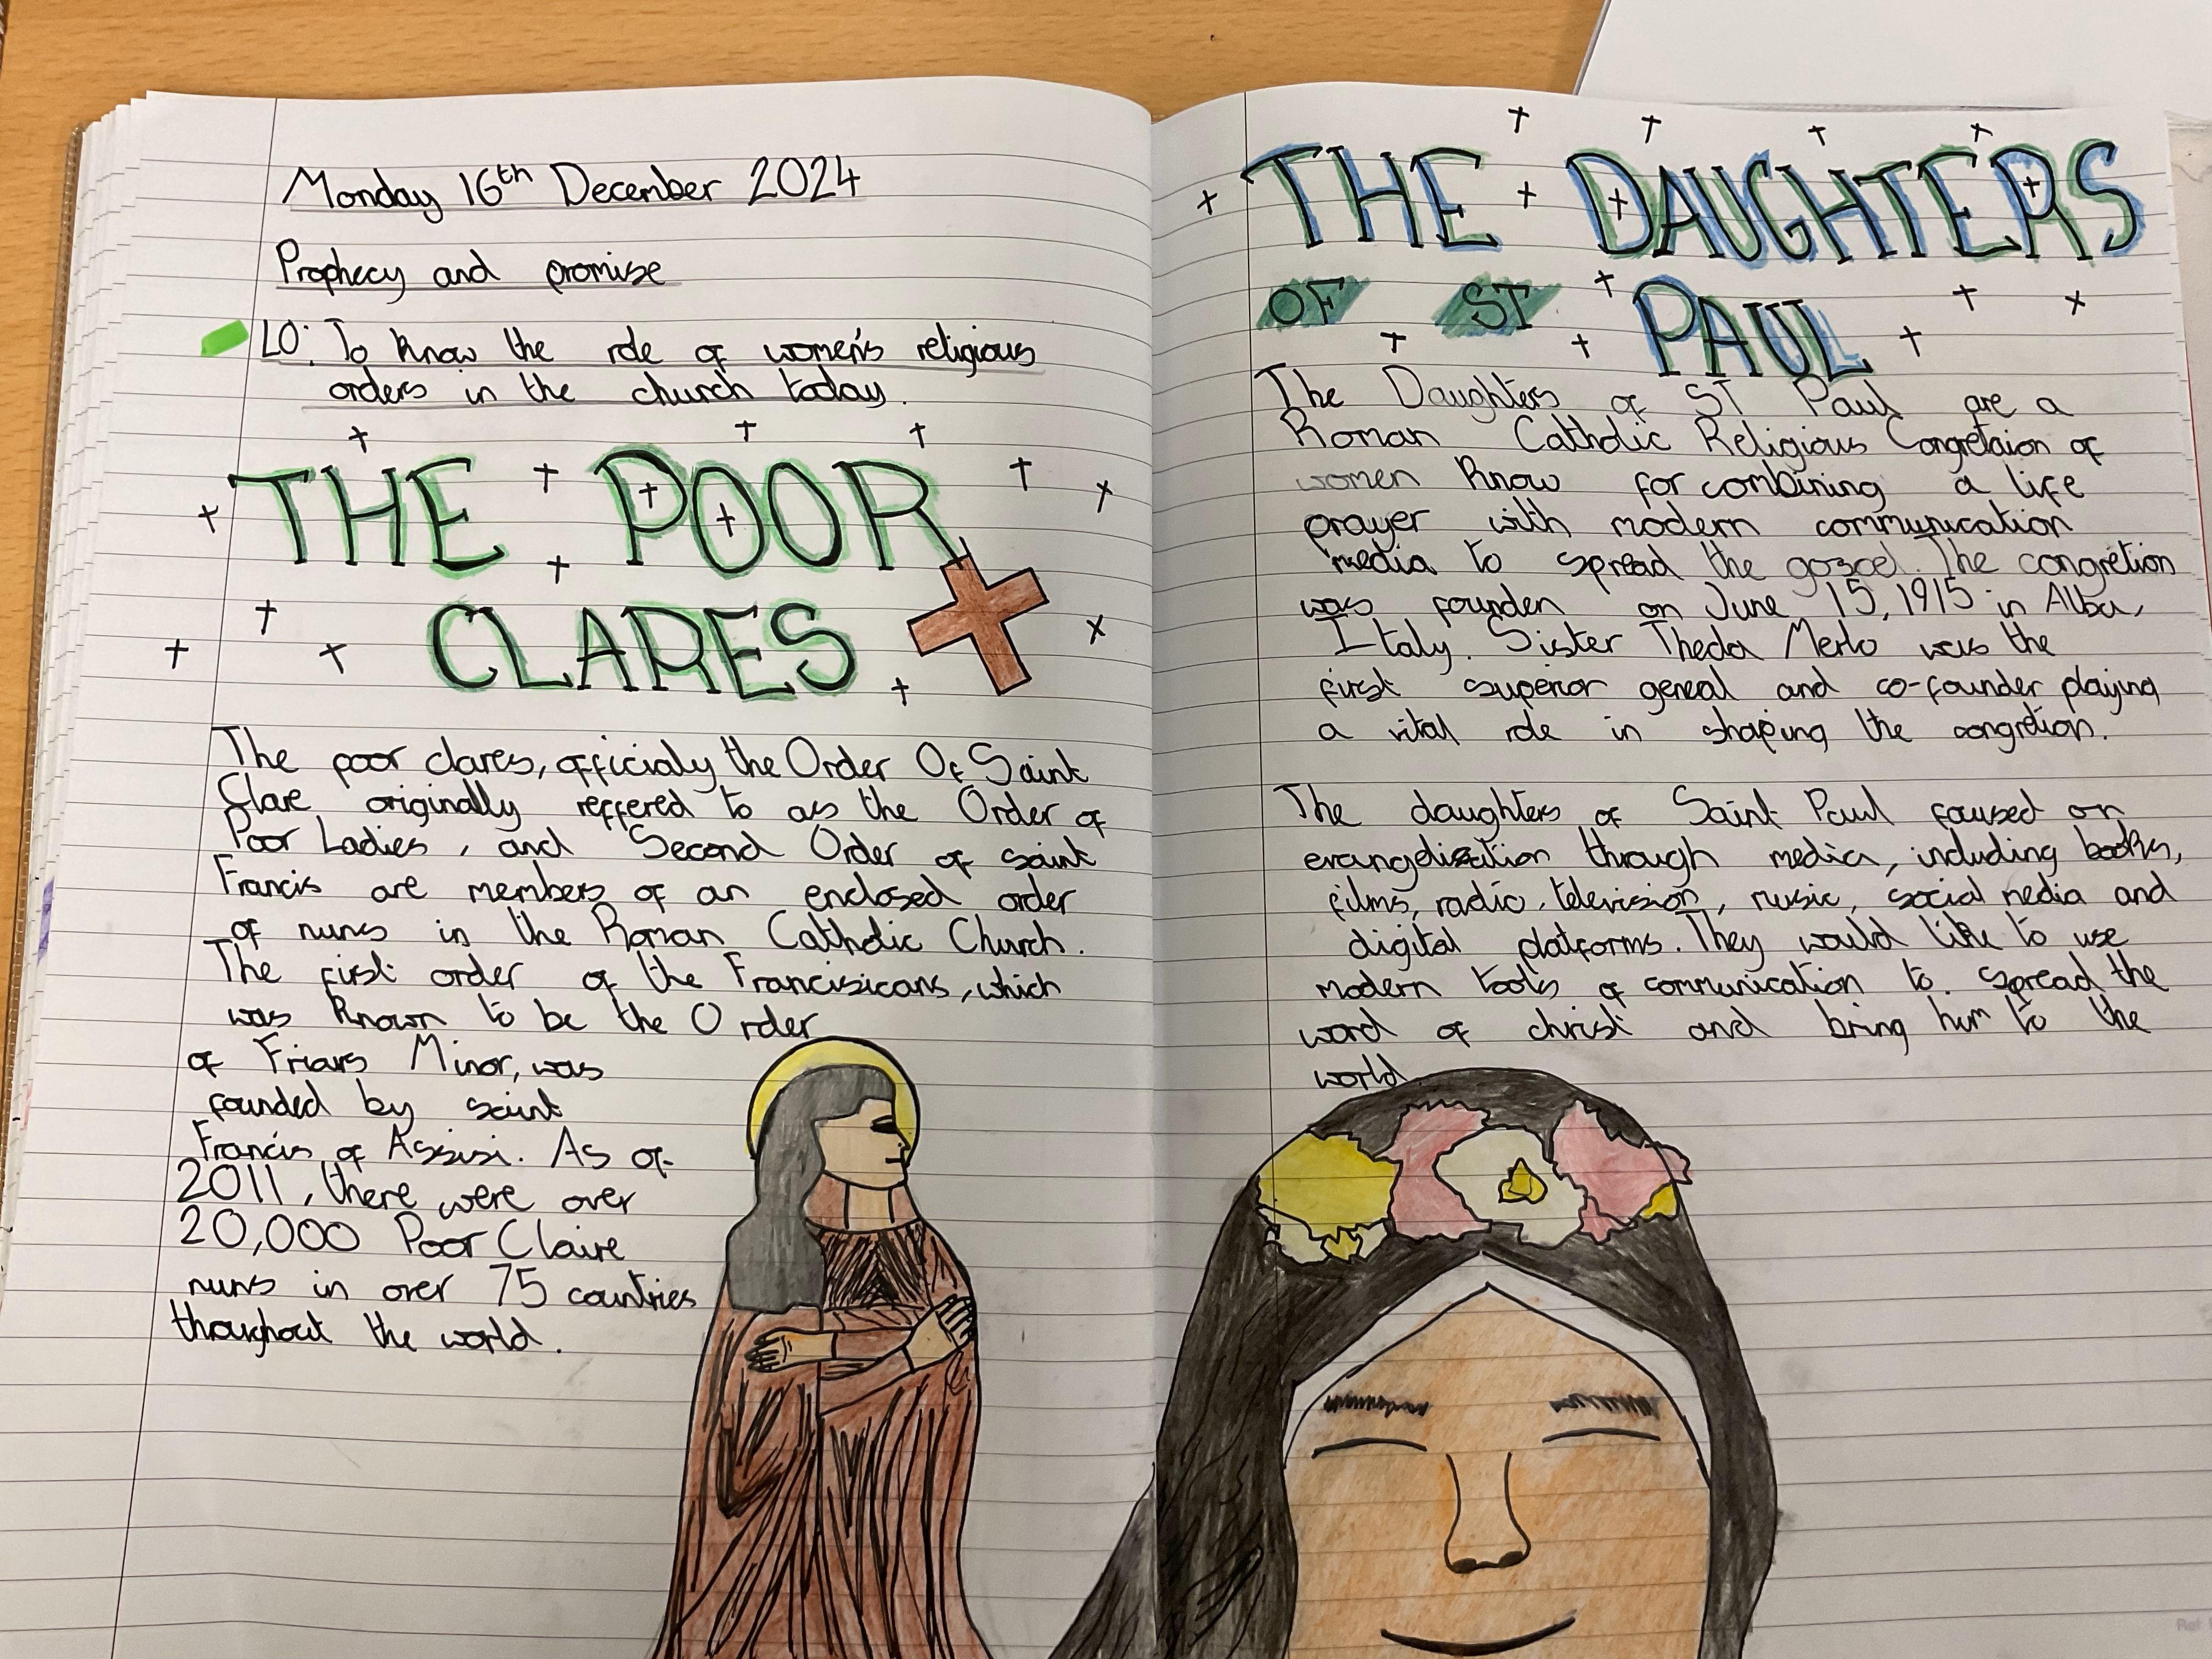 Monday 16th December 2024
Prophecy and promise
LO: To know the role of women's religious
orders in the church today.
THE POOR
CLARES
The poor clares, officialy the Order Of Saint
Clare originally reffered to as the Order of
Poor Ladies, and Second Order of saint
Francis are members of an enclosed order
of nuns in the Roman Catholic Church.
The first order of the Francisicans, which
was known to be the Order
of Friars Minor, was
founded by saint
Francis of Assisi. As of
2011, there were over
20,000 Poor Claire
nuns in over 75 countries
throughout the world.
THE DAUGHTERS
OF ST PAUL
The Daughters of ST Paul are a
Roman Catholic Religious Congretaion of
women know for combining a life
prayer with modern communication
media to spread the gospel. The congretion
was founden on June 15, 1915 in Alba,
Italy. Sister Thecla Merlo was the
first superior geneal and co-founder playing
a vital role in shaping the congretion.
The daughters of Saint Paul foused on
evangelization through media, including books,
films, radio, television, music, social media and
digital platforms. They would like to use
modern tools of communication to. spread the
word of christ and bring him to the
world.